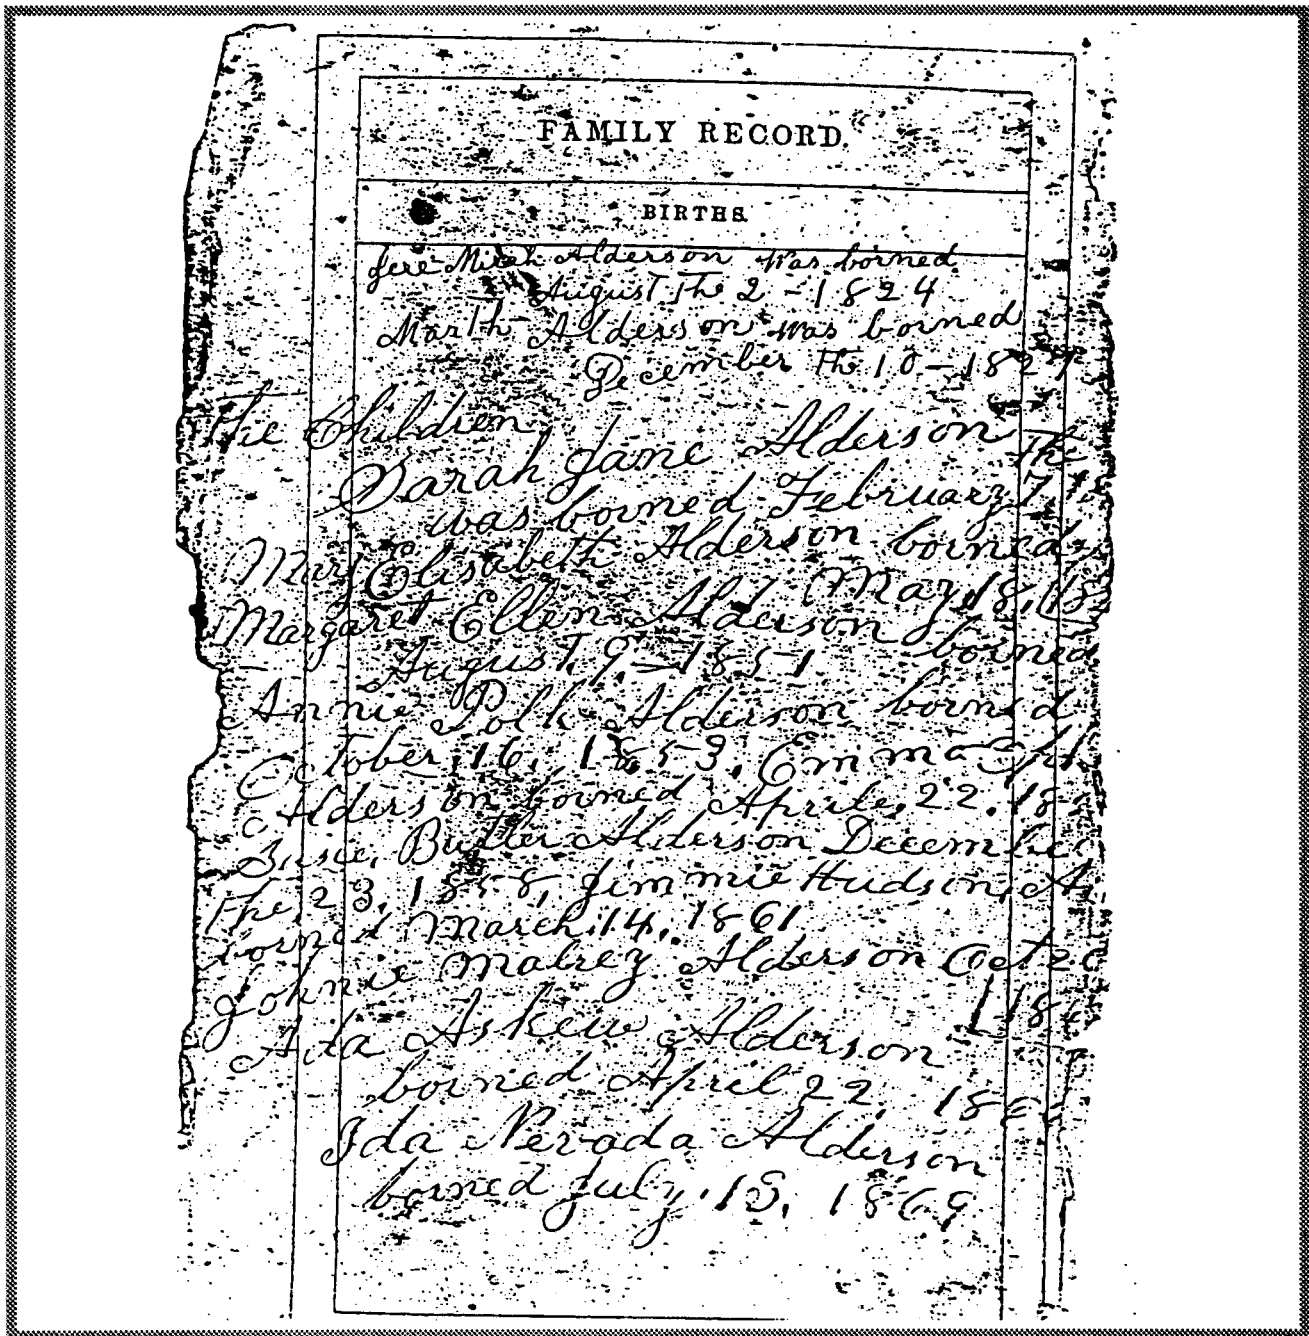 FAMILY RECORD.
BIRTHS.
Jere Miah Alderson was borned
August The 2 - 1824
Marth Alderson was borned
December th 10 - 182
The Children
Sarah Jane Alderson The
was borned February 7,
Mary Elisabeth Alderson borned
May, 18, 18
Margaret Ellen Alderson borned
August, 9, - 1851
Annie Polk Alderson borned
October, 16, 1853, Emma
Alderson borned Aprile, 22, 18
Susie, Butler Alderson Decembe
the, 23, 1858, Jimmie Hudson, A
borned March, 14, 1861
Johnie Mabrey Alderson Oct
18
Ada Askew Alderson
borned April 22, 186
Ida Nevada Alderson
borned July, 18, 1869